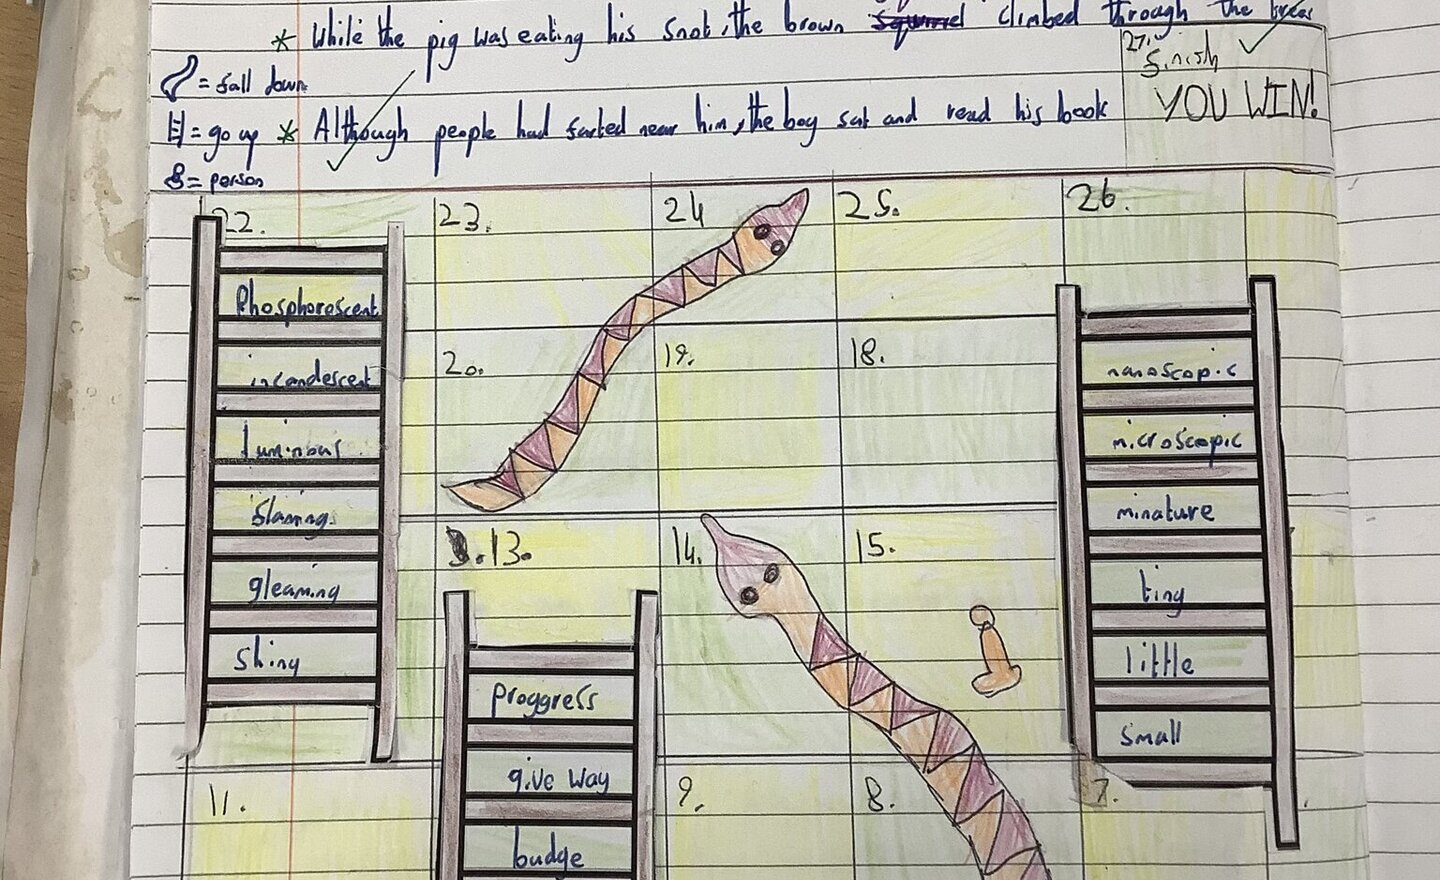 * While the pig was eating his snot, the brown squirrel climbed through the trees
27.
finish
YOU WIN!
= fall down
= go up * Although people had farted near him, the boy sat and read his book
= person
22. 23. 24 25. 26.
Phosphorescent
incandescent
luminous
flaming
gleaming
shiny
20. 19. 18.
nanoscopic
microscopic
minature
tiny
little
small
13. 14. 15.
proggress
give way
budge
11. 9. 8. 7.